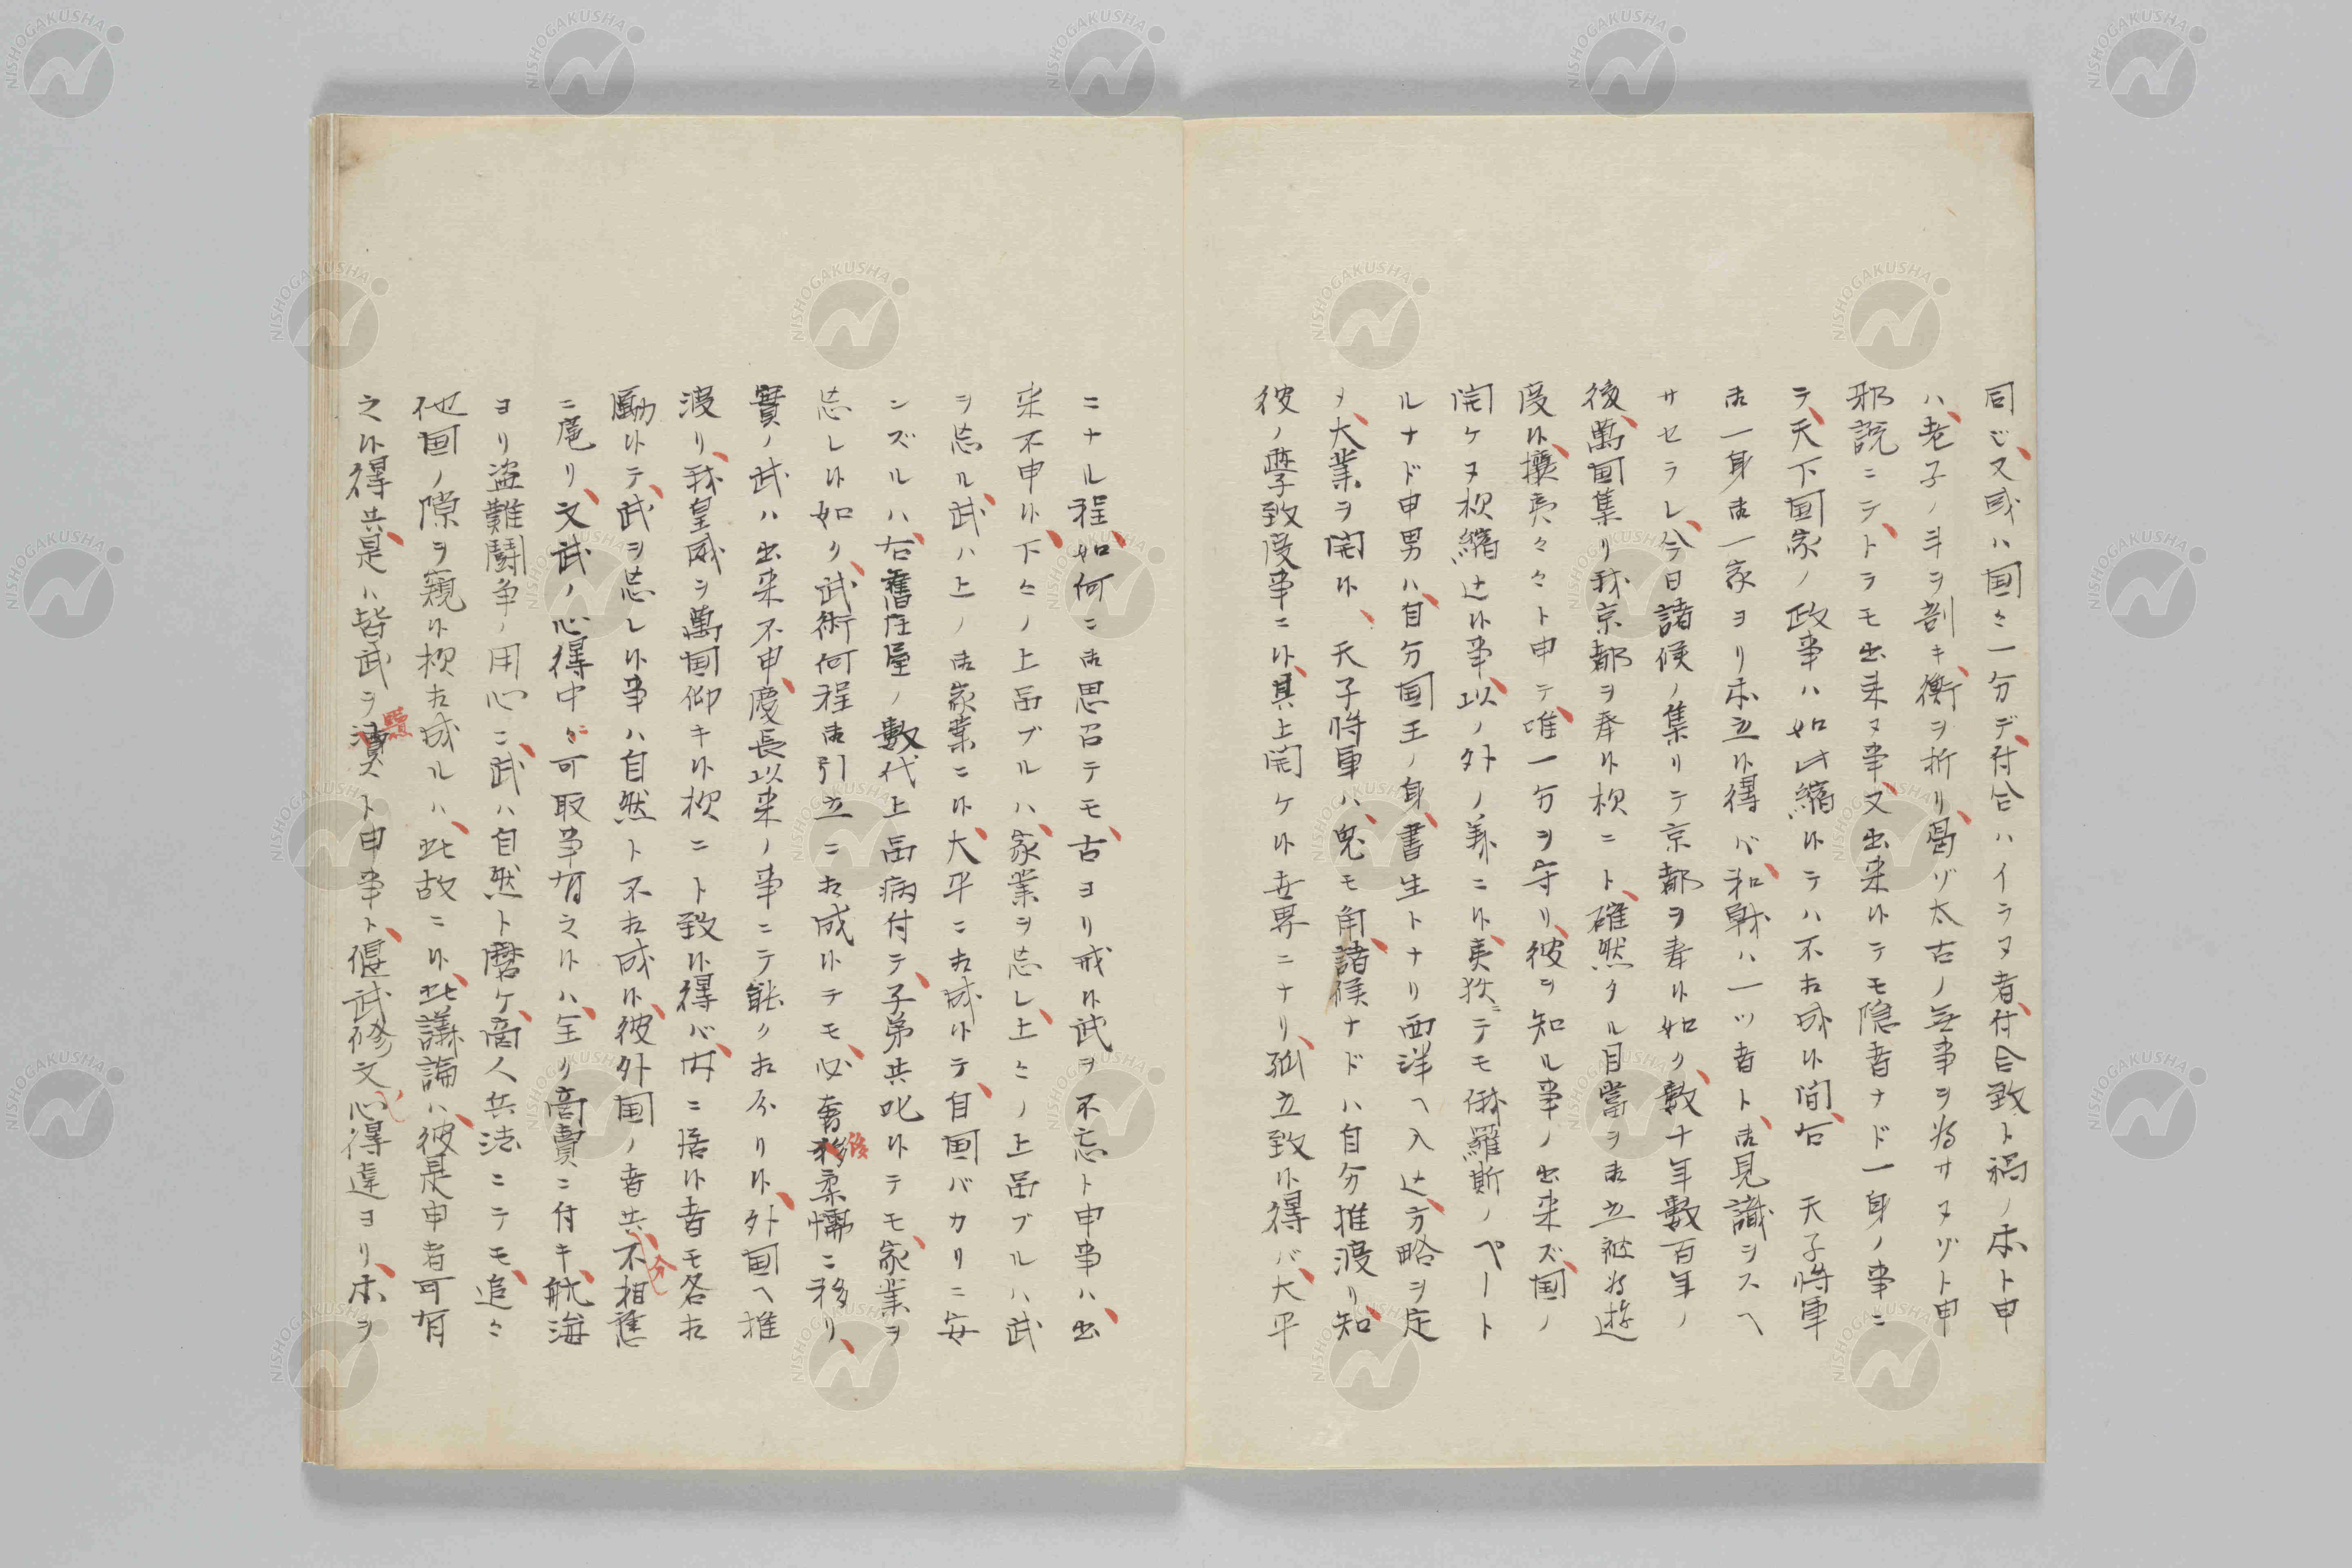 同じ又或ハ国々一分デ付合ハイラヌ者付合致ト禍ノ本ト申
ハ老子ノ斗ヲ剖キ衡ヲ折リ曷ゾ太古ノ無事ヲ為サヌゾト申
邪説ニテトラモ出来ヌ事又出来候テモ隠者ナド一身ノ事ニ
テ天下国家ノ政事ハ如此縮候テハ不相成候間右 天子将軍
御一身御一家ヨリ本立候得バ和戦ハ一ツ者ト御見識ヲスヘ
サセラレ今日諸侯ノ集リテ京都ヲ奉候如ク数十年数百年ノ
後萬国集リ我京都ヲ奉候様ニト確然タル目当ヲ御立被為遊
度候攘夷々々ト申テ唯一分ヲ守リ彼ヲ知ル事ノ出来ズ国ノ
開ケヌ様縮込候事以ノ外ノ義ニ候夷狄ニテモ俄羅斯ノペート
ルナド申男ハ自分国王ノ身書生トナリ西洋ヘ入込方略ヲ定
メ大業ヲ開候 天子将軍ハ兎モ角諸侯ナドハ自分推渡リ知
彼ノ学致度事ニ候其上開ケ候世界ニナリ孤立致候得バ大平
ニナル程如何ニ御思召テモ古ヨリ戒候武ヲ不忘ト申事ハ出
来不申候下々ノ上品ブルハ家業ヲ忘レ上々ノ上品ブルハ武
ヲ忘ル武ハ上ノ御家業ニ候大平ニ相成候テ自国バカリニ安
ンズルハ右舊庄屋ノ数代上品病付テ子弟共叱候テモ家業ヲ
忘レ候如ク武術何程御引立ニ相成候テモ必奢移柔懦ニ移リ
侈
實ノ武ハ出来不申慶長以来ノ事ニテ能ク相分リ候外国ヘ推
渡リ我皇威ヲ萬国仰キ候様ニト致候得バ内ニ居候者モ各相
勵候テ武ヲ忘レ候事ハ自然ト不相成候彼外国ノ者共不相應
分
ニ庵リ文武ノ心得中々可取事有之候ハ全ク商賣ニ付キ航海
ヨリ盗難闘争ノ用心ニ武ハ自然ト磨ケ商人兵法ニテモ追々
他国ノ隙ヲ窺候様相成ルハ此故ニ候此議論ハ彼是申者可有
之候得共是ハ皆武ヲ瀆スト申事ト偃武修文心得違ヨリ本ヲ
黷